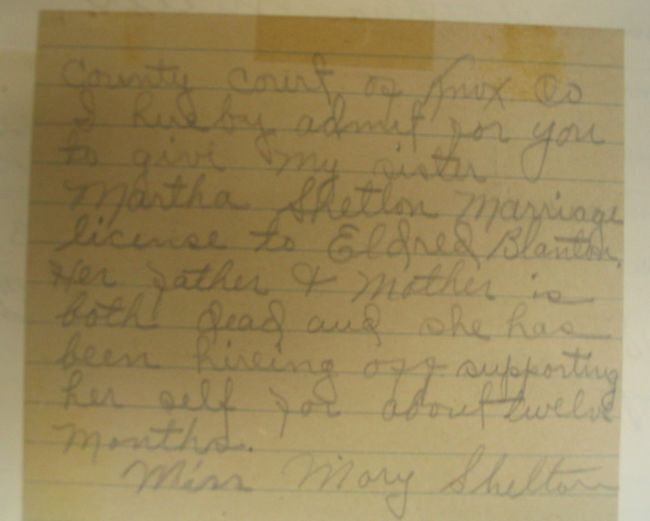 County court of Knox Co
I hereby admit for you
to give my sister
Martha Shelton Marriage
license to Eldred Blanton.
Her father & Mother is
both dead and she has
been hireing off supporting
her self for about twelve
Months.
Miss Mary Shelton